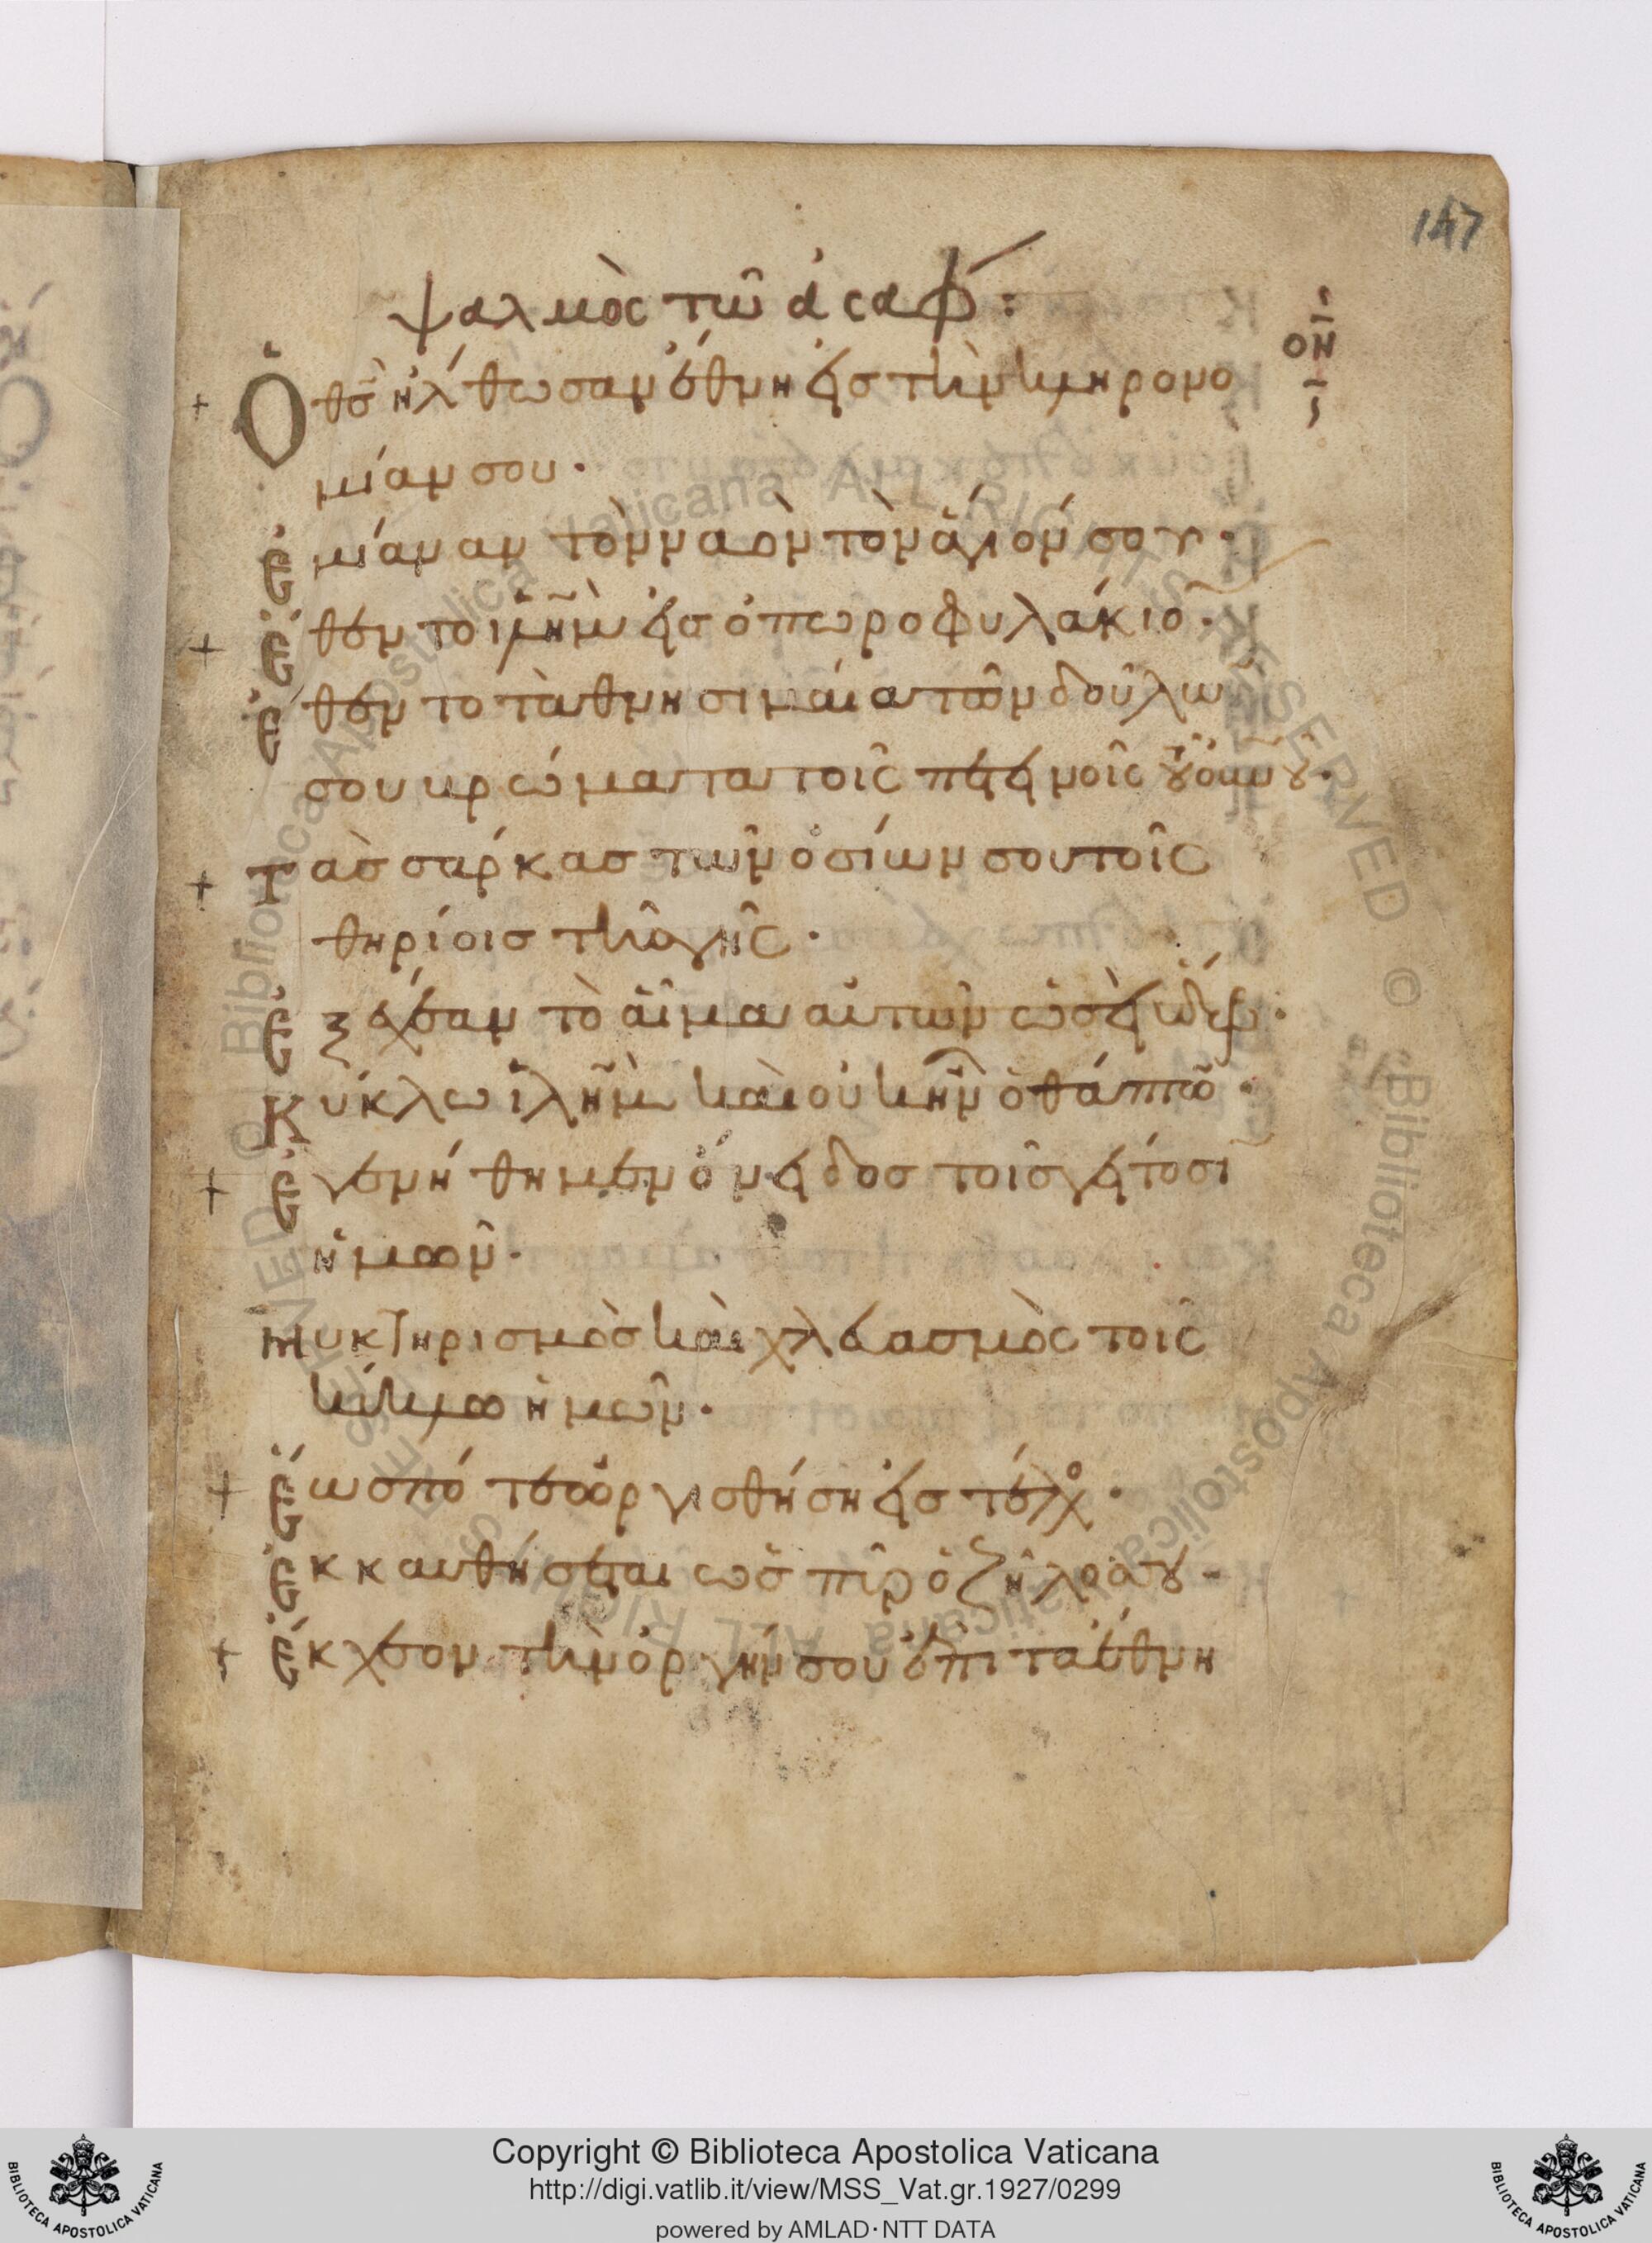 147
ψαλμὸς τῶ ἀσάφ :
οη
Ὁ θσ ἤλθωσαν ἔθνη εἰς τὴν κληρονο
μίαν σου ·
Ἐμίαναν τὸν ναὸν τὸν ἅγιόν σου ·
Ἔθεντο ἰλημ εἰς ὀπωροφυλάκιον ·
Ἔθεντο τὰ θνησιμαῖα τῶν δούλων
σου βρώματα τοῖς πετεινοῖς τοῦ οὐνοῦ ·
Τὰς σάρκας τῶν ὁσίων σου τοῖς
θηρίοις τῆς γῆς ·
Ἐξέχεαν τὸ αἷμα αὐτῶν ὡσεὶ ὕδωρ ·
Κύκλω ἰλημ καὶ οὐκ ἦν ὁ θάπτων ·
Ἐγενήθημεν ὄνειδος τοῖς γείτοσιν
ἡμῶν ·
Μυκτηρισμὸς καὶ χλευασμὸς τοῖς
κύκλω ἡμῶν ·
Ἕως πότε κε ὀργισθήση εἰς τέλος ·
Ἐκκαυθήσεται ὡς πῦρ ὁ ζῆλος σου ·
Ἔκχεον τὴν ὀργήν σου ἐπὶ τὰ ἔθνη
Copyright © Biblioteca Apostolica Vaticana
http://digi.vatlib.it/view/MSS_Vat.gr.1927/0299
powered by AMLAD·NTT DATA
BIBLIOTECA APOSTOLICA VATICANA
BIBLIOTECA APOSTOLICA VATICANA